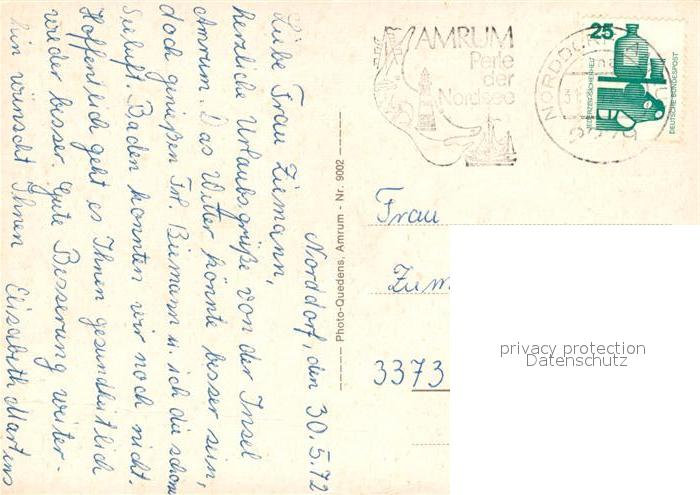 Norddorf, den 30.5.72
Liebe Frau Ziemann,
herzliche Urlaubsgrüße von der Insel
Amrum. Das Wetter könnte besser sein,
doch genießen Frl. Biemann u. ich die schöne
Seeluft. Baden konnten wir noch nicht.
Hoffentlich geht es Ihnen gesundheitlich
wieder besser. Gute Besserung weiter-
hin wünscht Ihnen Elisabeth Martens
Photo-Quedens, Amrum - Nr. 9002
AMRUM
Perle
der
Nordsee
NORDDORF
25
DEUTSCHE BUNDESPOST
Frau
Ziem
3373
privacy protection
Datenschutz